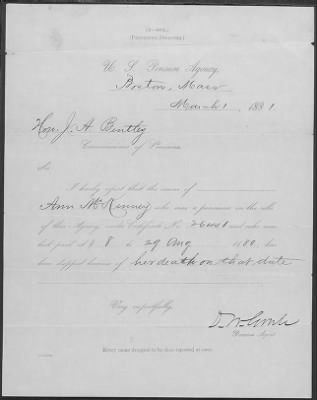 (PENSIONER DROPPED.)
U. S. Pension Agency,
Boston, Mass
March 1, 1881
Hon. J. A. Bentley
Commissioner of Pensions.
Sir:
I hereby report that the name of
Ann McKenney who was a pensioner on the rolls
of this Agency, under Certificate No. and who was
last paid at $ 8 to 29 Aug 1880, has
been dropped because of her death on that date
Very respectfully,
Pension Agent.
Every name dropped to be thus reported at once.